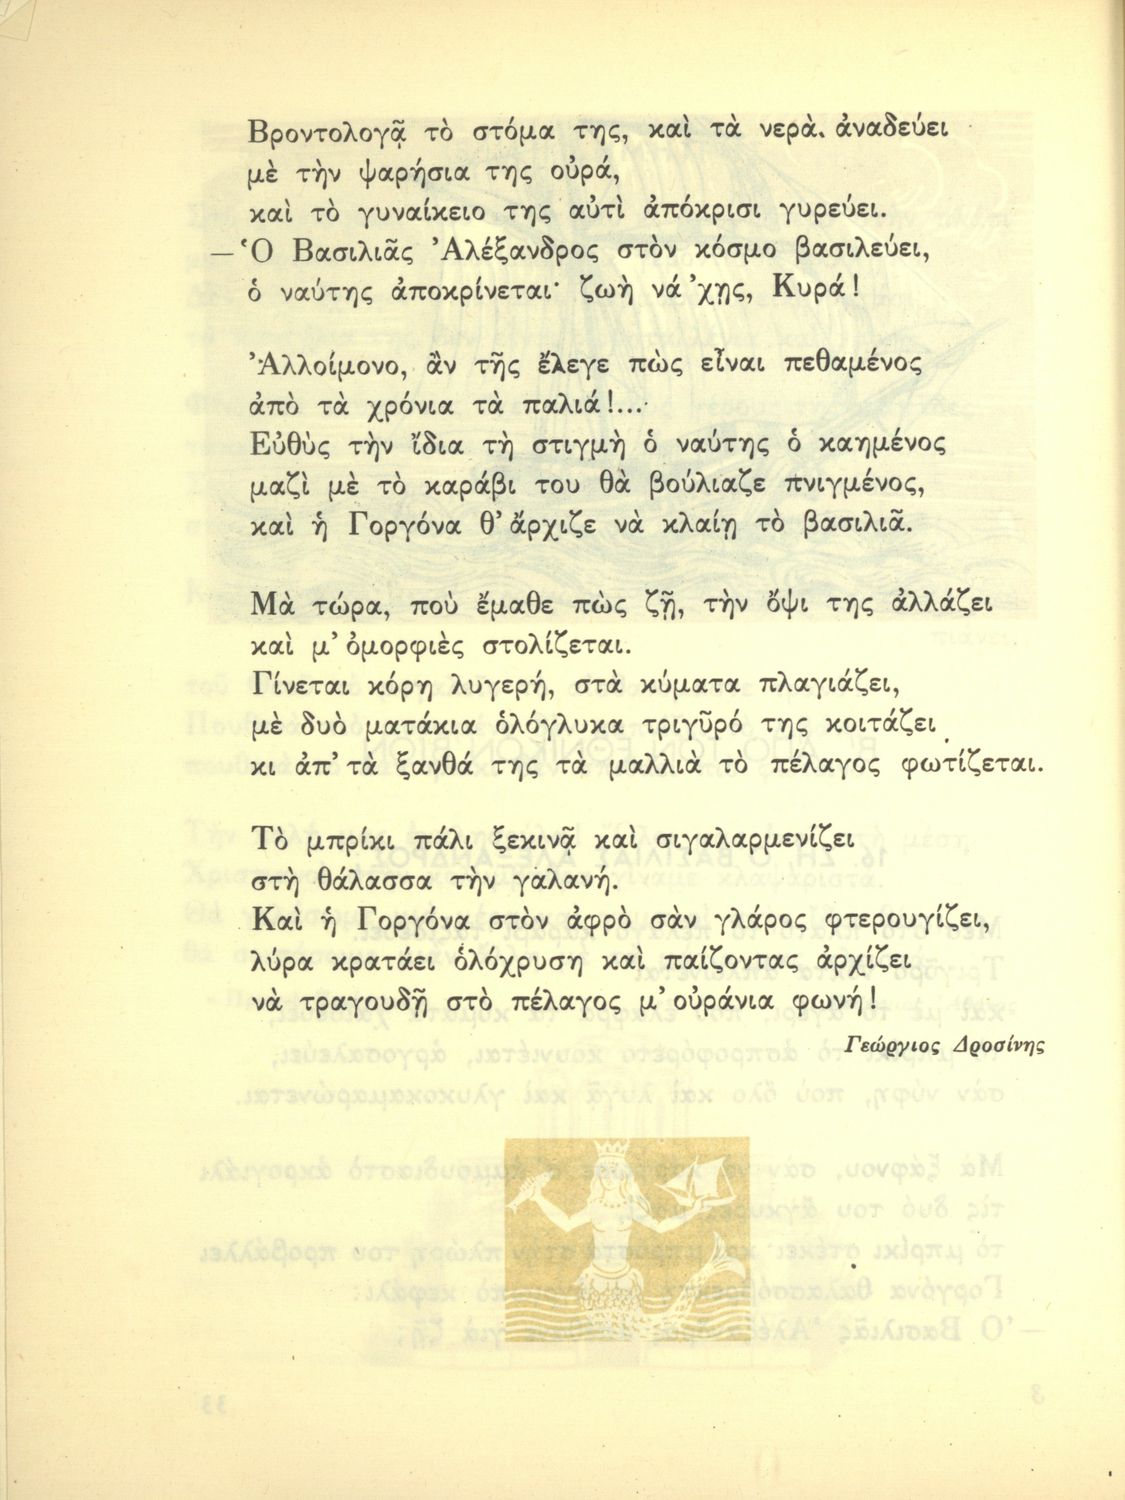 Βροντολογᾷ τὸ στόμα της, καὶ τὰ νερὰ. ἀναδεύει
μὲ τὴν ψαρήσια της οὐρά,
καὶ τὸ γυναίκειο της αὐτὶ ἀπόκρισι γυρεύει.
—Ὁ Βασιλιᾶς Ἀλέξανδρος στὸν κόσμο βασιλεύει,
ὁ ναύτης ἀποκρίνεται· ζωὴ νά ’χῃς, Κυρά!
Ἀλλοίμονο, ἂν τῆς ἔλεγε πὼς εἶναι πεθαμένος
ἀπὸ τὰ χρόνια τὰ παλιά!...
Εὐθὺς τὴν ἴδια τὴ στιγμὴ ὁ ναύτης ὁ καημένος
μαζὶ μὲ τὸ καράβι του θὰ βούλιαζε πνιγμένος,
καὶ ἡ Γοργόνα θ’ ἄρχιζε νὰ κλαίῃ τὸ βασιλιᾶ.
Μὰ τώρα, ποὺ ἔμαθε πὼς ζῇ, τὴν ὄψι της ἀλλάζει
καὶ μ’ ὀμορφιὲς στολίζεται.
Γίνεται κόρη λυγερή, στὰ κύματα πλαγιάζει,
μὲ δυὸ ματάκια ὁλόγλυκα τριγῦρό της κοιτάζει
κι ἀπ’ τὰ ξανθά της τὰ μαλλιὰ τὸ πέλαγος φωτίζεται.
Τὸ μπρίκι πάλι ξεκινᾷ καὶ σιγαλαρμενίζει
στὴ θάλασσα τὴν γαλανή.
Καὶ ἡ Γοργόνα στὸν ἀφρὸ σὰν γλάρος φτερουγίζει,
λύρα κρατάει ὁλόχρυση καὶ παίζοντας ἀρχίζει
νὰ τραγουδῇ στὸ πέλαγος μ’ οὐράνια φωνή!
Γεώργιος Δροσίνης